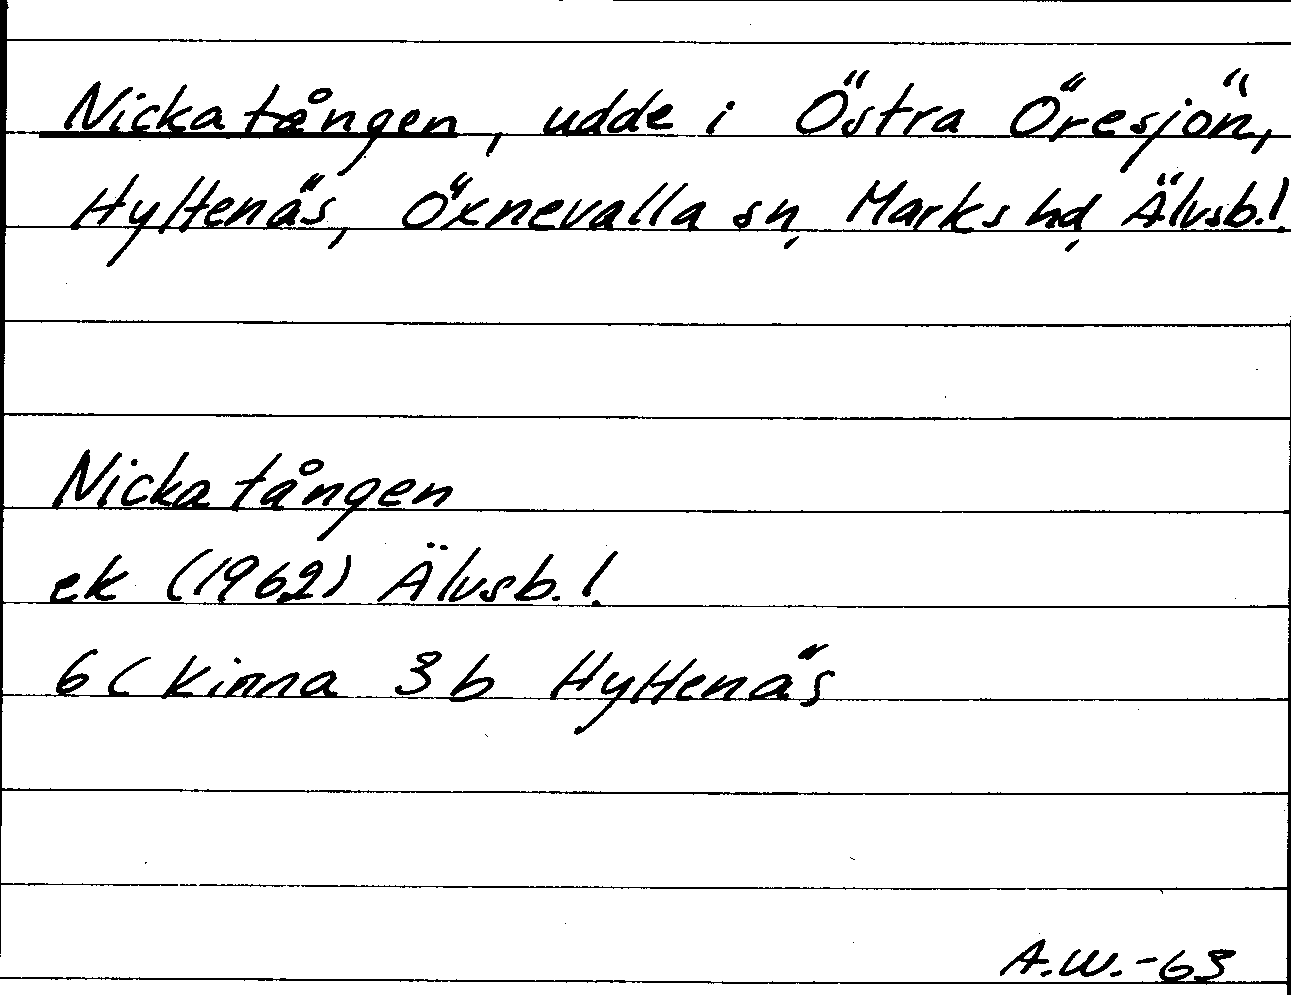 Nickatången, udde i Östra Öresjön,
Hyltenäs, Öxnevalla sn, Marks hd, Älvsb.l.
Nickatången
ek (1962) Älvsb.l.
6C Kinna 3b Hyltenäs
A.W.-63